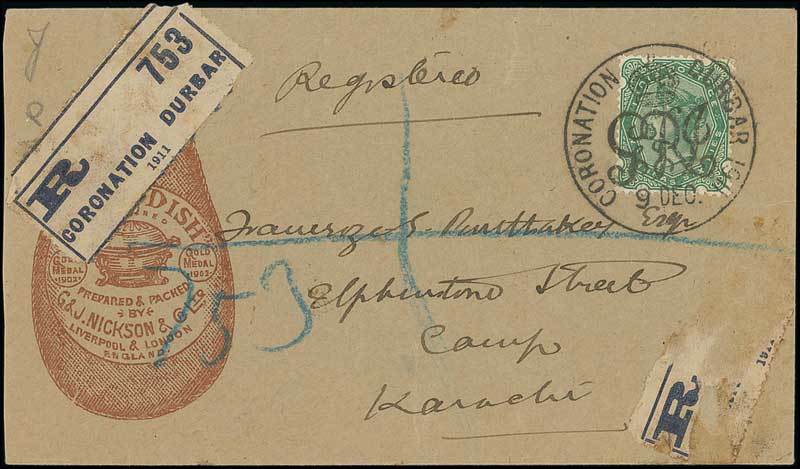 R 753
CORONATION DURBAR
1911
Registered
CORONATION DURBAR 191
9 DEC.
DISH
GOLD MEDAL 1902
GOLD MEDAL 1902
PREPARED & PACKED
BY
G & J. NICKSON & Co LTD
LIVERPOOL & LONDON
ENGLAND
Esqr
753
Elphinstone Street
Camp
Karachi
R
1911